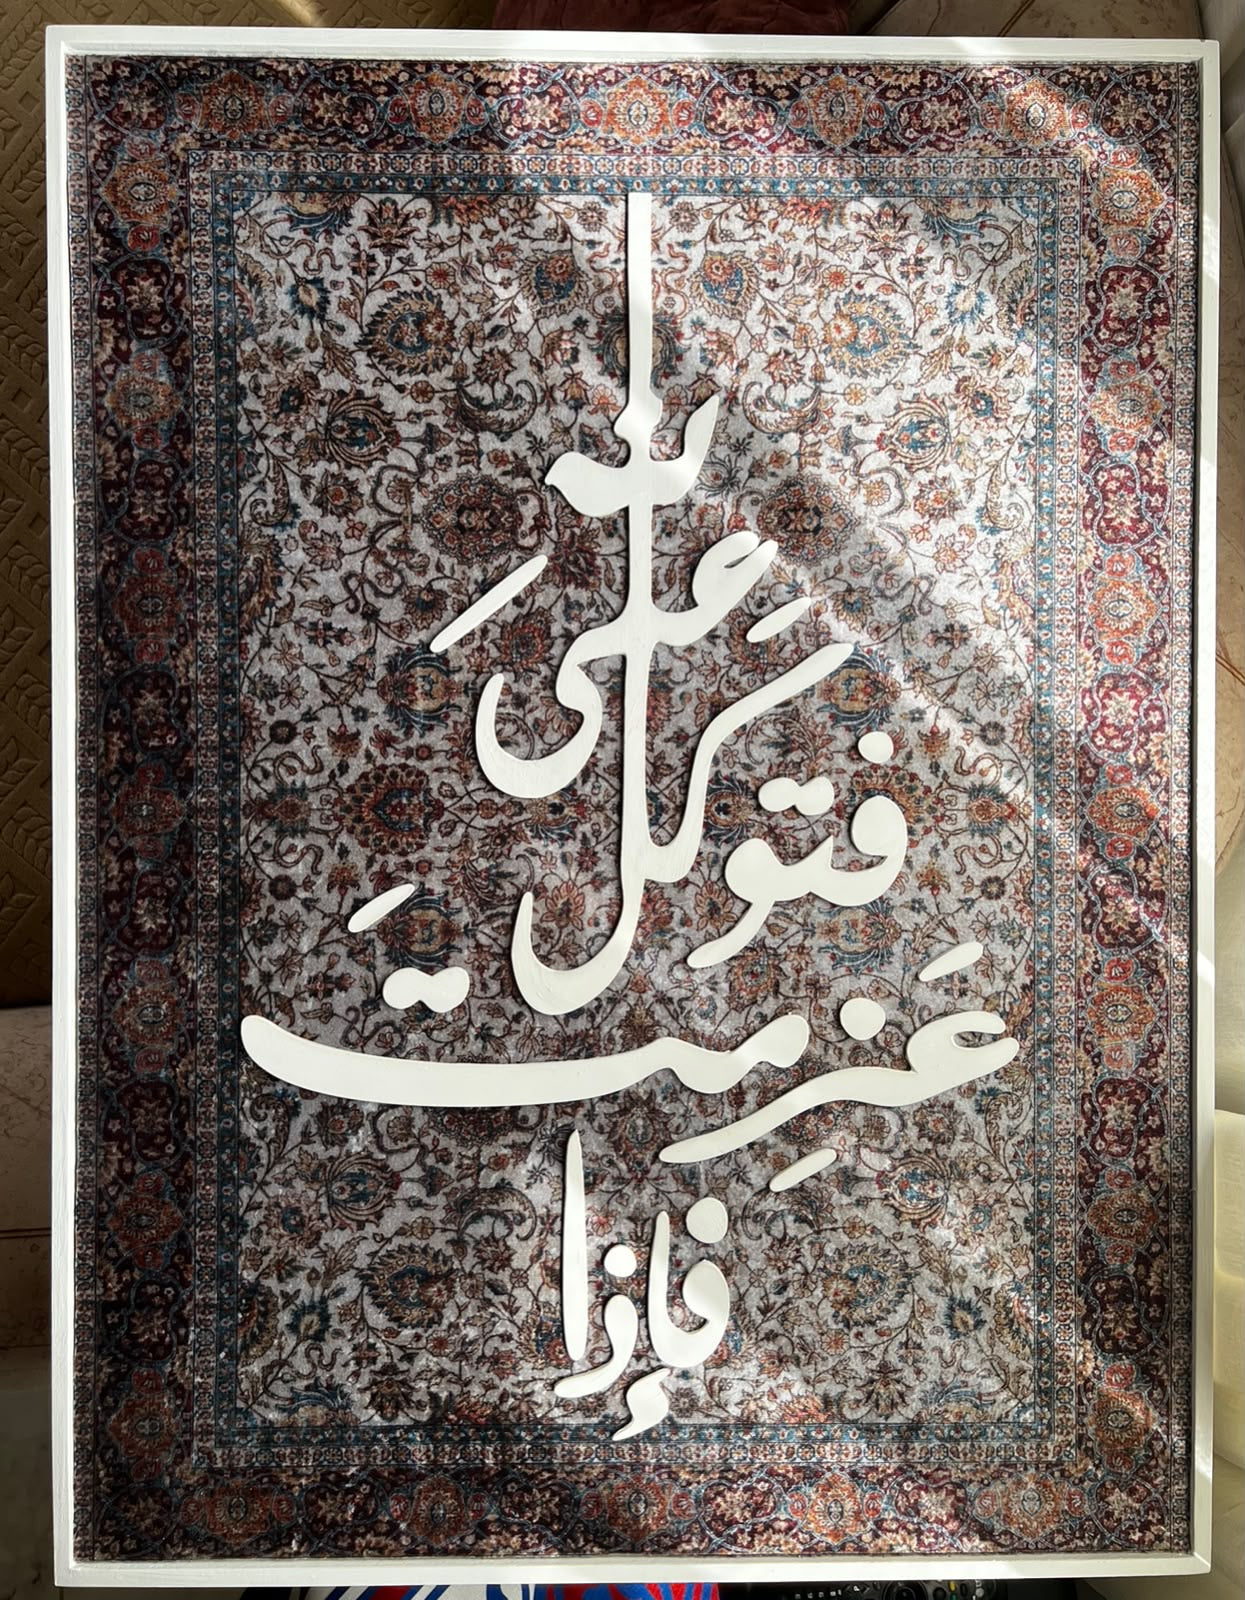 فإذا
عَزمتَ
فتوكل
علَى
الله